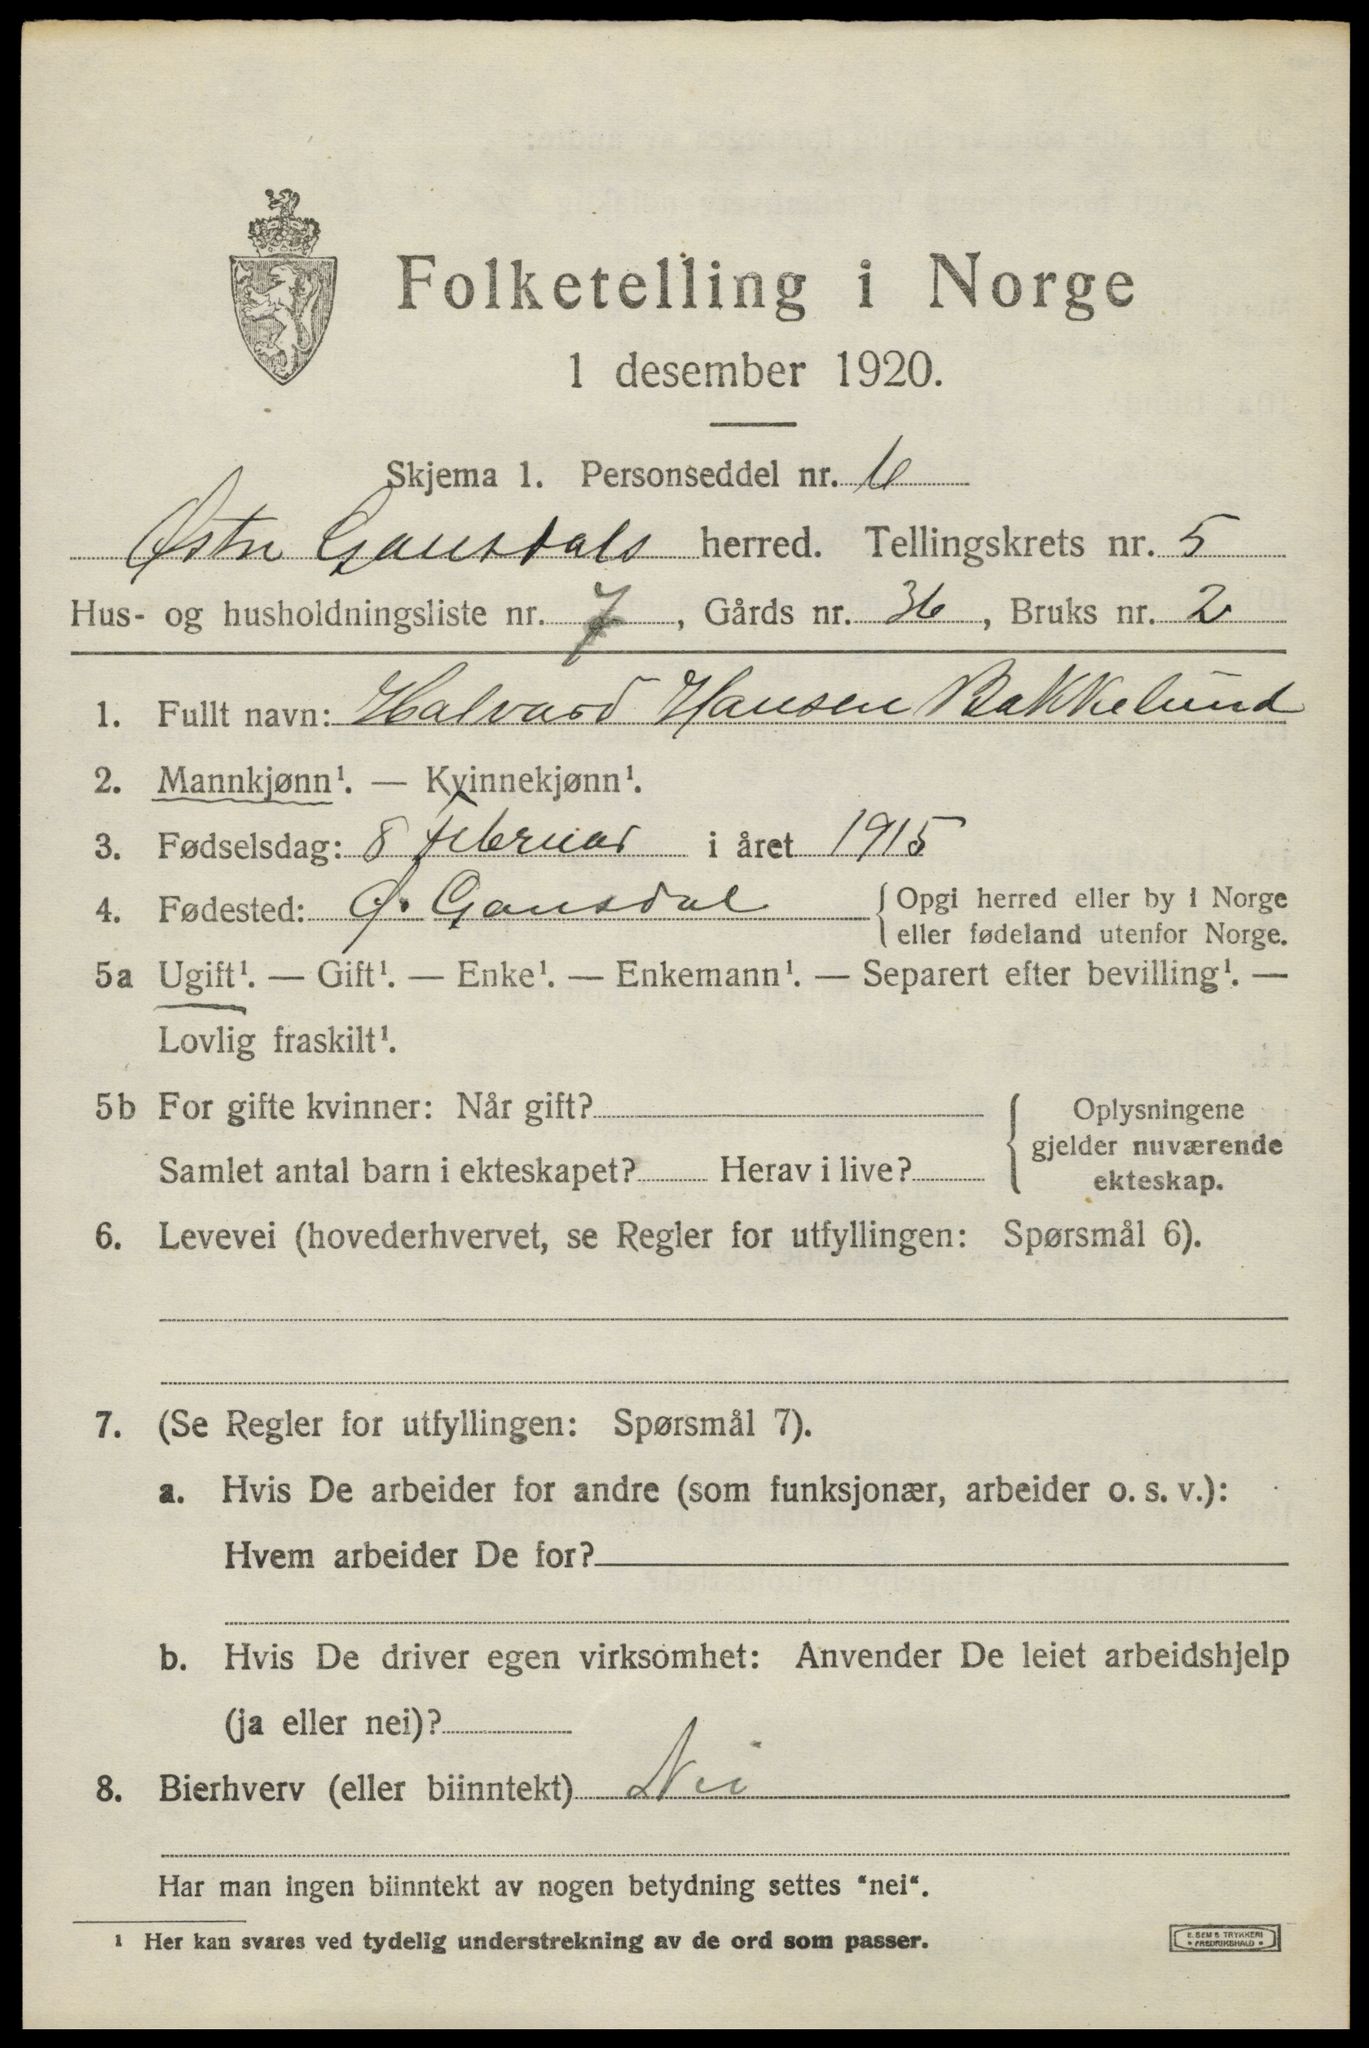 Folketelling i Norge
1 desember 1920.
Skjema 1. Personseddel nr. 6
Østre Gausdals herred. Tellingskrets nr. 5
Hus- og husholdningsliste nr. 7, Gårds nr. 36, Bruks nr. 2
1. Fullt navn: Halvard Hansen Bakkelund
2. Mannkjønn¹. — Kvinnekjønn¹.
3. Fødselsdag: 8 februar i året 1915
4. Fødested: Ø. Gausdal { Opgi herred eller by i Norge
eller fødeland utenfor Norge.
5a Ugift¹. — Gift¹. — Enke¹. — Enkemann¹. — Separert efter bevilling¹. —
Lovlig fraskilt¹.
5b For gifte kvinner: Når gift? { Oplysningene
gjelder nuværende
Samlet antal barn i ekteskapet? Herav i live?
ekteskap.
6. Levevei (hovederhvervet, se Regler for utfyllingen: Spørsmål 6).
7. (Se Regler for utfyllingen: Spørsmål 7).
a. Hvis De arbeider for andre (som funksjonær, arbeider o. s. v.):
Hvem arbeider De for?
b. Hvis De driver egen virksomhet: Anvender De leiet arbeidshjelp
(ja eller nei)?
8. Bierhverv (eller biinntekt) Nei
Har man ingen biinntekt av nogen betydning settes "nei".
¹ Her kan svares ved tydelig understrekning av de ord som passer.
E. SEM S TRYKKERI
• FREDRIKSHALD •